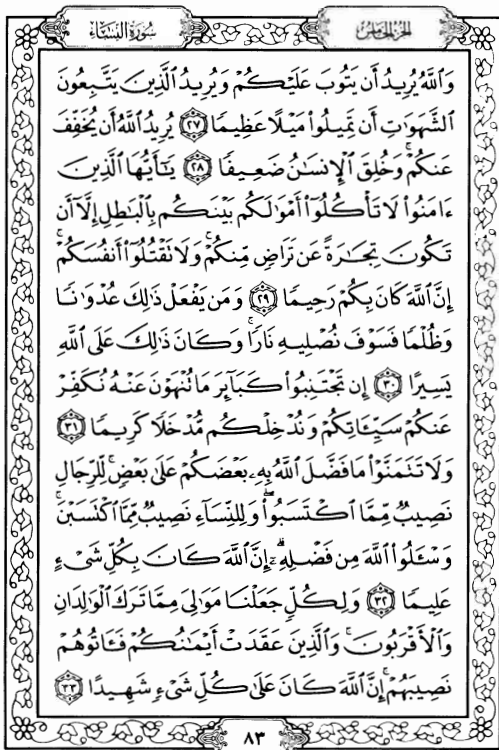 الجزء الخامس
سورة النساء
وَاللَّهُ يُرِيدُ أَن يَتُوبَ عَلَيْكُمْ وَيُرِيدُ الَّذِينَ يَتَّبِعُونَ
الشَّهَوَاتِ أَن تَمِيلُوا۟ مَيْلًا عَظِيمًا ٢٧ يُرِيدُ اللَّهُ أَن يُخَفِّفَ
عَنكُمْ ۚ وَخُلِقَ الْإِنسَـٰنُ ضَعِيفًا ٢٨ يَـٰٓأَيُّهَا الَّذِينَ
ءَامَنُوا۟ لَا تَأْكُلُوٓا۟ أَمْوَٰلَكُم بَيْنَكُم بِالْبَـٰطِلِ إِلَّآ أَن
تَكُونَ تِجَـٰرَةً عَن تَرَاضٍ مِّنكُمْ ۚ وَلَا تَقْتُلُوٓا۟ أَنفُسَكُمْ ۚ
إِنَّ اللَّهَ كَانَ بِكُمْ رَحِيمًا ٢٩ وَمَن يَفْعَلْ ذَٰلِكَ عُدْوَٰنًا
وَظُلْمًا فَسَوْفَ نُصْلِيهِ نَارًا ۚ وَكَانَ ذَٰلِكَ عَلَى اللَّهِ
يَسِيرًا ٣٠ إِن تَجْتَنِبُوا۟ كَبَآئِرَ مَا تُنْهَوْنَ عَنْهُ نُكَفِّرْ
عَنكُمْ سَيِّـَٔاتِكُمْ وَنُدْخِلْكُم مُّدْخَلًا كَرِيمًا ٣١
وَلَا تَتَمَنَّوْا۟ مَا فَضَّلَ اللَّهُ بِهِۦ بَعْضَكُمْ عَلَىٰ بَعْضٍ ۚ لِّلرِّجَالِ
نَصِيبٌ مِّمَّا اكْتَسَبُوا۟ ۖ وَلِلنِّسَآءِ نَصِيبٌ مِّمَّا اكْتَسَبْنَ ۚ
وَسْـَٔلُوا۟ اللَّهَ مِن فَضْلِهِۦٓ ۗ إِنَّ اللَّهَ كَانَ بِكُلِّ شَىْءٍ
عَلِيمًا ٣٢ وَلِكُلٍّ جَعَلْنَا مَوَٰلِىَ مِمَّا تَرَكَ الْوَٰلِدَانِ
وَالْأَقْرَبُونَ ۚ وَالَّذِينَ عَقَدَتْ أَيْمَـٰنُكُمْ فَـَٔاتُوهُمْ
نَصِيبَهُمْ ۚ إِنَّ اللَّهَ كَانَ عَلَىٰ كُلِّ شَىْءٍ شَهِيدًا ٣٣
٨٣